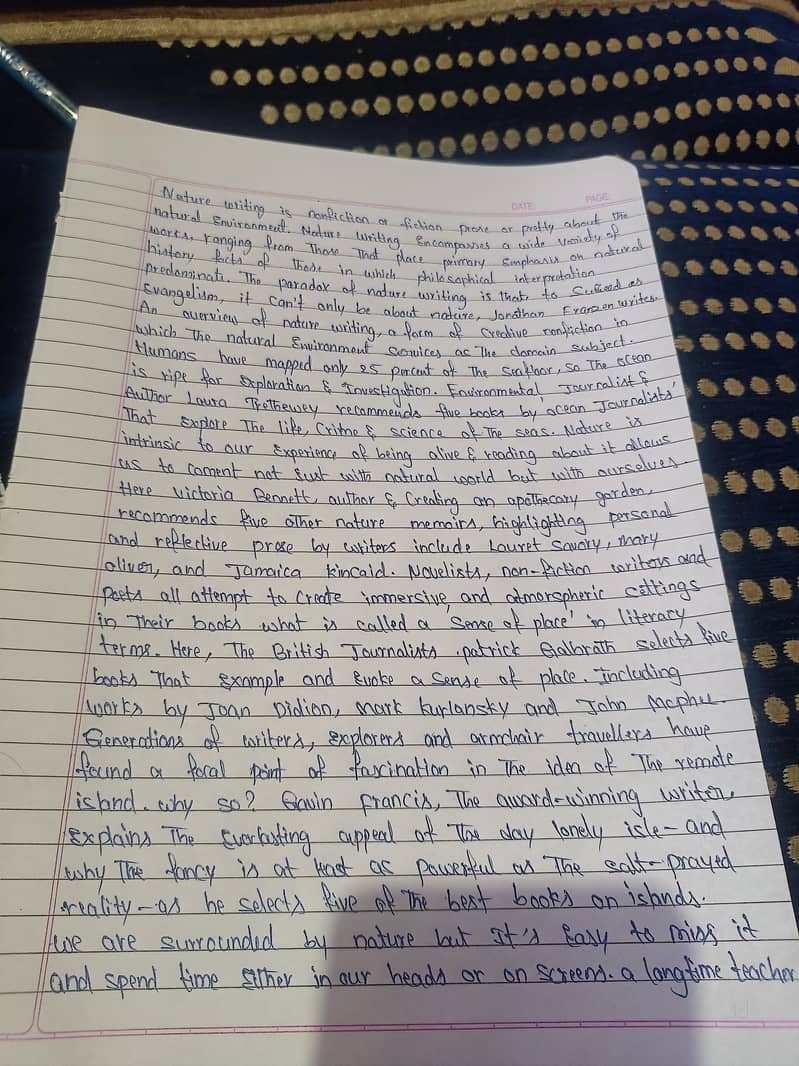 DATE PAGE
Nature writing is nonfiction or fiction prose or pretty about the
natural Environment. Nature Writing Encompasses a wide variety of
works, ranging from Those That place primary Emphasis on natural
history facts of Those in which philosophical interpretation
predominate. The paradox of nature writing is that, to Succeed as
Evangelism, it can't only be about nature, Jonathan Franzen writes.
An overview of nature writing, a form of Creative nonfiction in
which The natural Environment Services as The domain subject.
Humans have mapped only 25 percent of The seafloor, so The ocean
is ripe for Exploration & Investigation. Environmental Journalist &
Author Laura Trethewey recommends five books by 'ocean Journalists'
That Explore The life, Crime & science of The seas. Nature is
intrinsic to our Experience of being alive & reading about it allows
us to coment not Just with natural world but with ourselves
Here Victoria Bennett, author & Creating an apothecary garden,
recommends five other nature memoirs, highlighting personal
and reflective prose by writers include Lauret Savoy, mary
oliver, and Jamaica kincaid. Novelists, non-fiction writers and
Poets all attempt to Create immersive and atmorspheric settings
in Their books what is called a 'sense of place' in literary
terms. Here, The British Journalists patrick Galbrath selects five
books That Example and Evoke a sense of place. Including
works by Joan Didion, mark kurlansky and John Mcphee
Generations of writers, Explorers and armchair travellers have
found a focal point of fascination in The idea of The remote
island. why so? Gavin francis, The award-winning writer
Explains The Everlasting appeal of The day lonely isle - and
why The fancy is at least as powerful as The salt-prayed
reality - as he selects five of The best books on islands.
we are surrounded by nature but It's Easy to miss it
and spend time Either in our heads or on screens. a longtime teacher